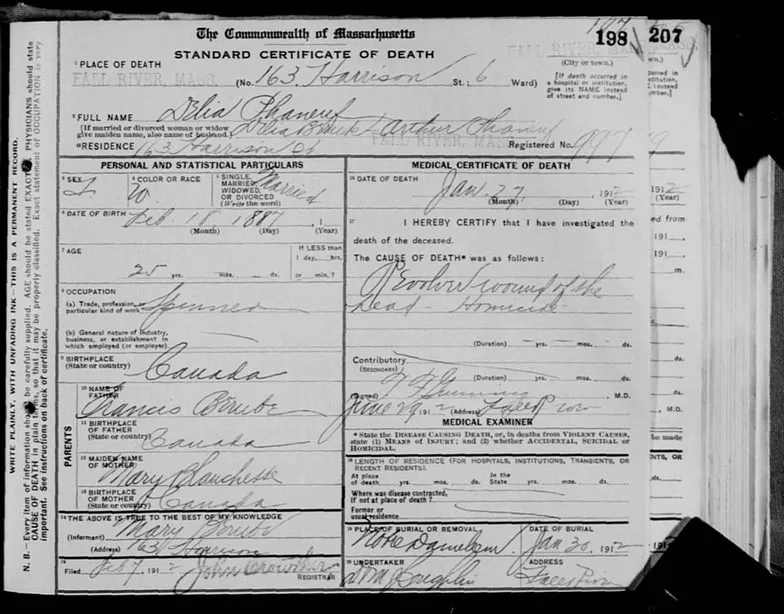 The Commonwealth of Massachusetts
STANDARD CERTIFICATE OF DEATH
198
207
1 PLACE OF DEATH
FALL RIVER, MASS.
FALL RIVER, MASS.
(City or town.)
(No. 163 Harrison St.; 6 Ward)
[If death occurred in a hospital or institution, give its NAME instead of street and number.]
2 FULL NAME Delia Phaneuf
[If married or divorced woman or widow give maiden name, also name of husband.] Delia Arthur Phaneuf
FALL RIVER, MASS.
RESIDENCE 163 Harrison St
Registered No. 997
PERSONAL AND STATISTICAL PARTICULARS
3 SEX
4 COLOR OR RACE W.
5 SINGLE, MARRIED, WIDOWED, OR DIVORCED (Write the word) Married
6 DATE OF BIRTH Feb 18, 1887
(Month) (Day) (Year)
7 AGE
25 yrs. mos. ds.
If LESS than 1 day, hrs. or min.?
8 OCCUPATION
(a) Trade, profession, or particular kind of work Spinner
(b) General nature of industry, business, or establishment in which employed (or employer).
9 BIRTHPLACE (State or country) Canada
PARENTS
10 NAME OF FATHER Francis Berube
11 BIRTHPLACE OF FATHER (State or country) Canada
12 MAIDEN NAME OF MOTHER Mary
13 BIRTHPLACE OF MOTHER (State or country) Canada
14 THE ABOVE IS TRUE TO THE BEST OF MY KNOWLEDGE
(Informant) Mary Berube
(Address) 163 Harrison
15
Filed Feb 7, 1912 John Crowther
REGISTRAR
MEDICAL CERTIFICATE OF DEATH
16 DATE OF DEATH
Jan 27, 1912
(Month) (Day) (Year)
17 I HEREBY CERTIFY that I have investigated the
death of the deceased.
The CAUSE OF DEATH* was as follows:
Revolver wound of the
head - Homicide
(Duration) yrs. mos. ds.
Contributory
(SECONDARY)
(Duration) yrs. mos. ds.
(Signed) M.D.
29 1912 (Address) Fall River
MEDICAL EXAMINER
* State the DISEASE CAUSING DEATH, or, in deaths from VIOLENT CAUSES, state (1) MEANS OF INJURY; and (2) whether ACCIDENTAL, SUICIDAL or HOMICIDAL.
18 LENGTH OF RESIDENCE (FOR HOSPITALS, INSTITUTIONS, TRANSIENTS, OR RECENT RESIDENTS).
At place of death yrs. mos. ds. In the State yrs. mos. ds.
Where was disease contracted, if not at place of death?
Former or usual residence
19 PLACE OF BURIAL OR REMOVAL Notre Dame Cem.
DATE OF BURIAL Jan 30, 1912
20 UNDERTAKER
ADDRESS Fall River
WRITE PLAINLY, WITH UNFADING INK—THIS IS A PERMANENT RECORD.
N. B.—Every item of information should be carefully supplied. AGE should be stated EXACTLY. PHYSICIANS should state
CAUSE OF DEATH in plain terms, so that it may be properly classified. Exact statement of OCCUPATION is very
important. See instructions on back of certificate.